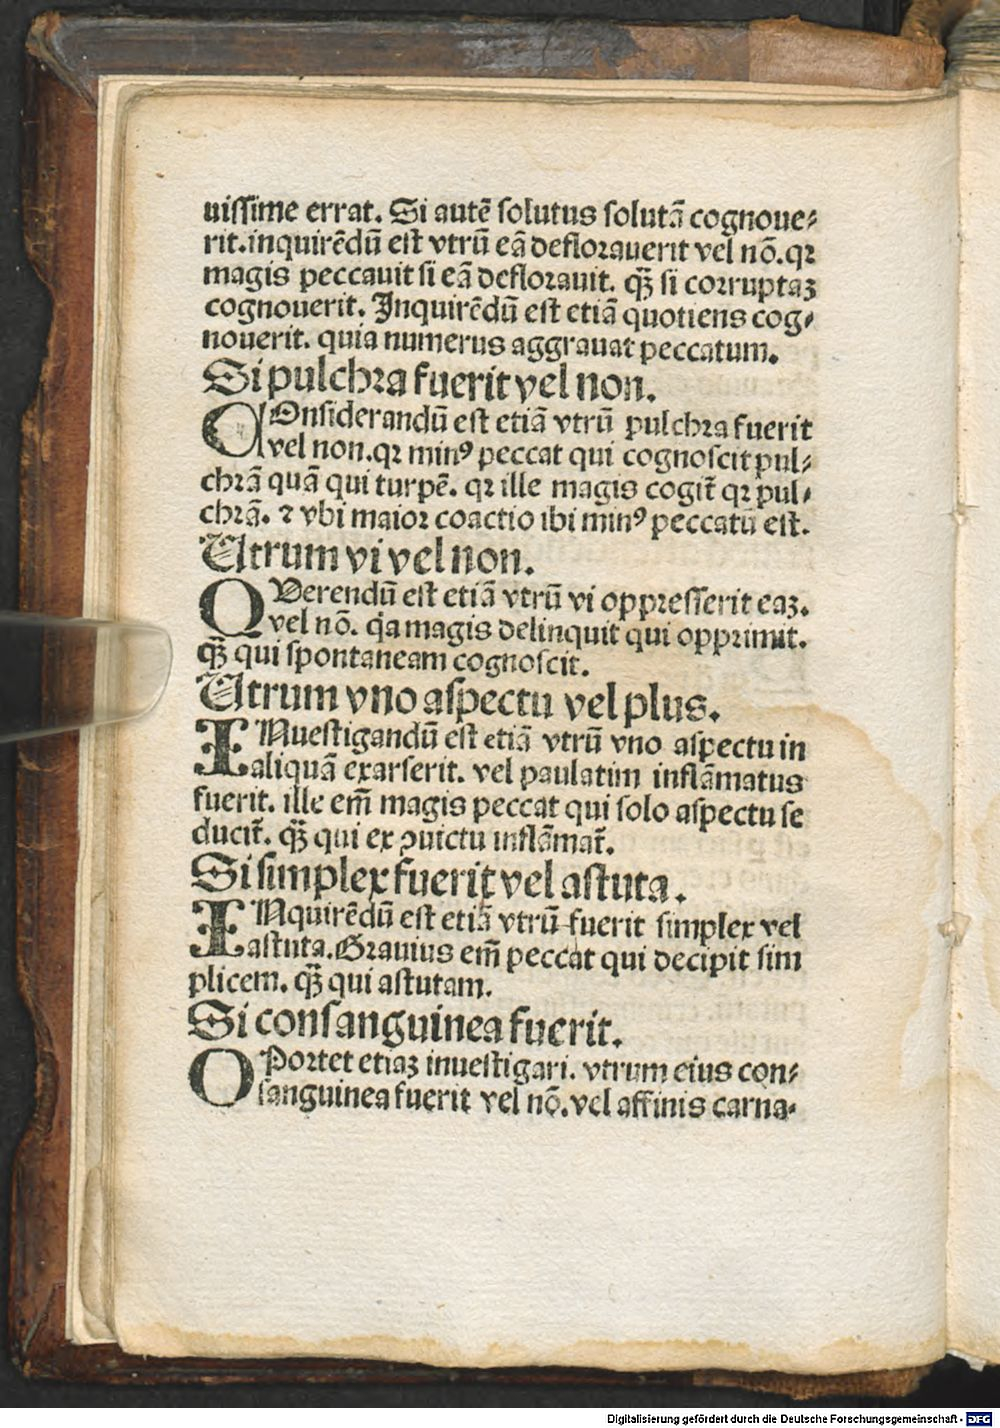 uissime errat. Si autē solutus solutā cognoue⸗
rit. inquirēdū est vtrū eā deflorauerit vel nō. qꝛ
magis peccauit si eā deflorauit. q̈ꝫ si corruptaꝫ
cognouerit. Inquirēdū est etiā quotiens cog⸗
nouerit. quia numerus aggrauat peccatum.
Si pulchꝛa fuerit vel non.
COnsiderandū est etiā vtrū pulchꝛa fuerit
vel non. qꝛ minꝰ peccat qui cognoscit pul⸗
chꝛā quā qui turpē. qꝛ ille magis cogit̃ qꝛ pul⸗
chꝛā. ⁊ vbi maioꝛ coactio ibi minꝰ peccatū est.
Utrum vi vel non.
QUerendū est etiā vtrū vi oppꝛesserit eaꝫ.
vel nō. q̄a magis delinquit qui oppꝛimit.
q̈ꝫ qui spontaneam cognoscit.
Utrum vno aspectu vel plus.
INuestigandū est etiā vtrū vno aspectu in
aliquā exarserit. vel paulatim inflāmatus
fuerit. ille em̄ magis peccat qui solo aspectu se
ducit̃. q̈ꝫ qui ex ꝯuictu inflāmat̃.
Si simplex fuerit vel astuta.
INquirēdū est etiā vtrū fuerit simplex vel
astuta. Grauius em̄ peccat qui decipit sim
plicem. q̈ꝫ qui astutam.
Si consanguinea fuerit.
OPoꝛtet etiaꝫ inuestigari. vtrum eius con⸗
sanguinea fuerit vel nō. vel affinis carna⸗
Digitalisierung gefördert durch die Deutsche Forschungsgemeinschaft - DFG